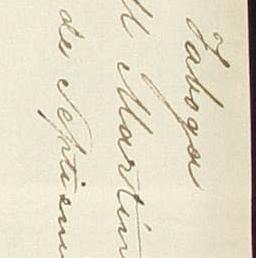 Taboga
Martín
de Septiem